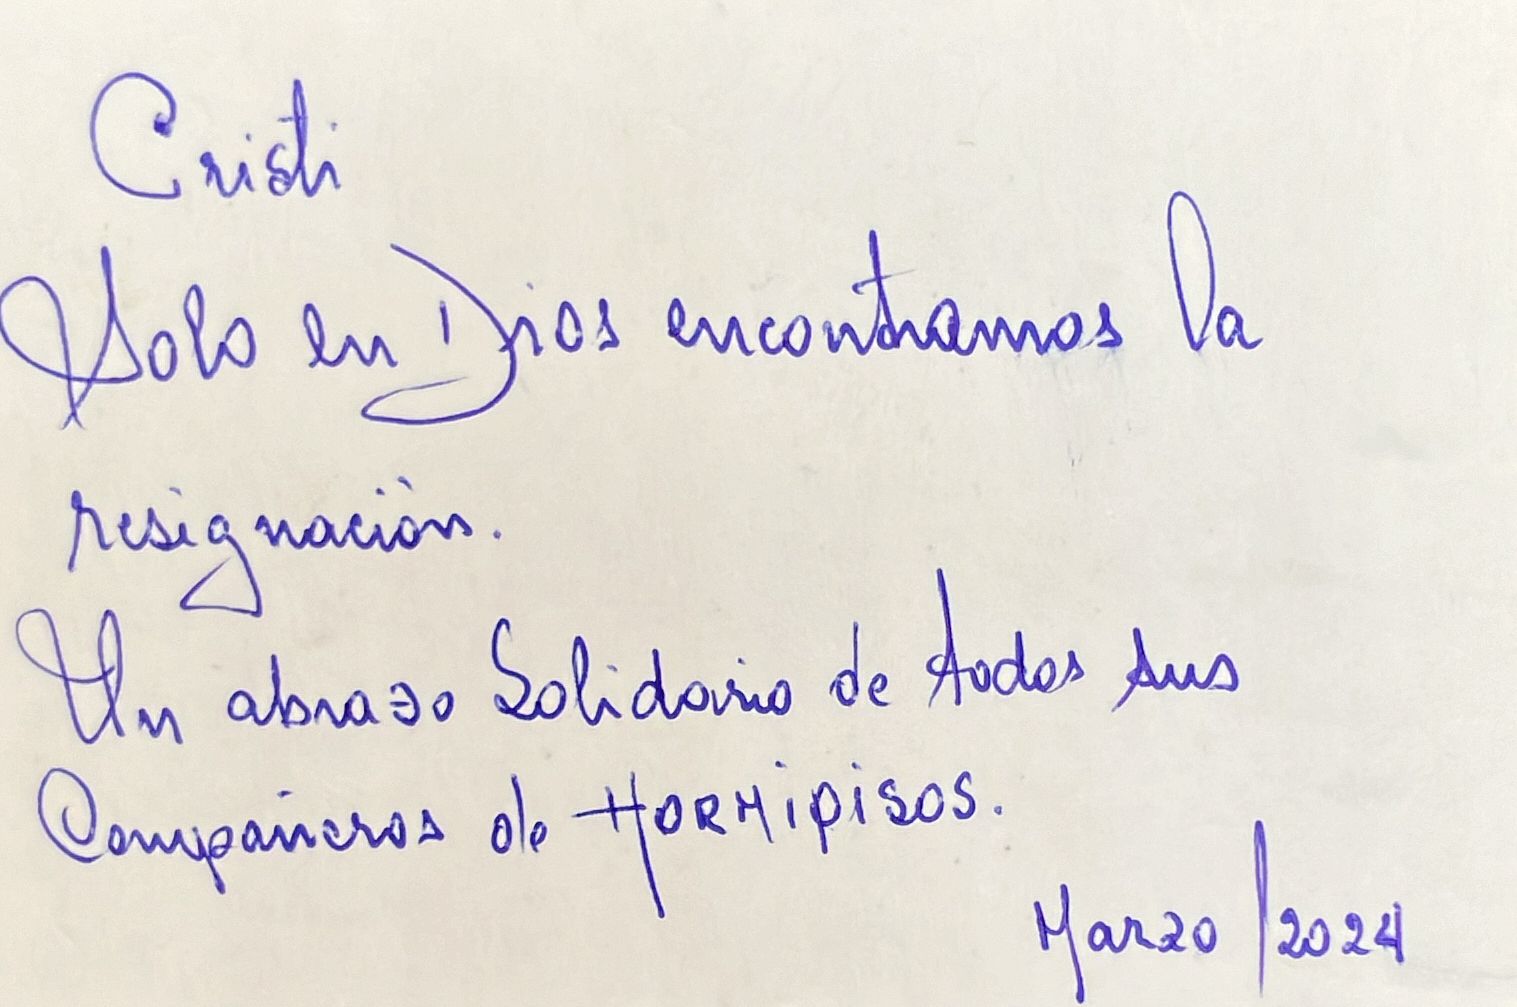 Cristi
Solo en Dios encontramos la
resignación.
Un abrazo Solidario de todos sus
Compañeros de HORMIPISOS.
Marzo/2024